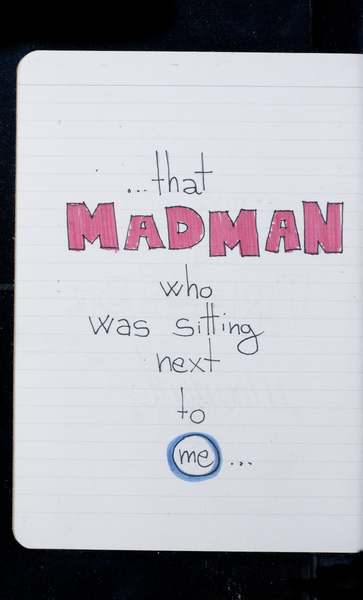 ...that
MADMAN
who
was sitting
next
to
me...